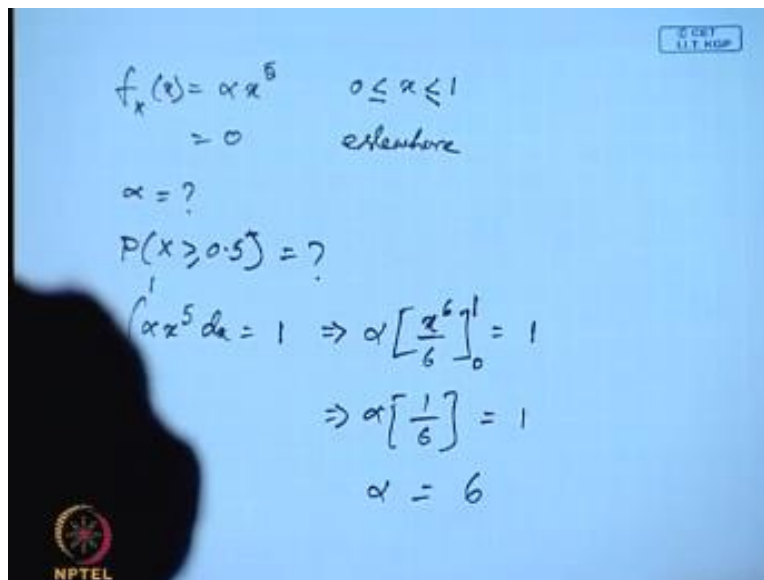 © CET
I.I.T. KGP
f_x(x) = αx^5 0 ≤ x ≤ 1
= 0 eslewhere
α = ?
P(X ≥ 0.5) = ?
∫^1 αx^5 dx = 1 ⇒ α[x^6/6]_0^1 = 1
⇒ α[1/6] = 1
α = 6
NPTEL